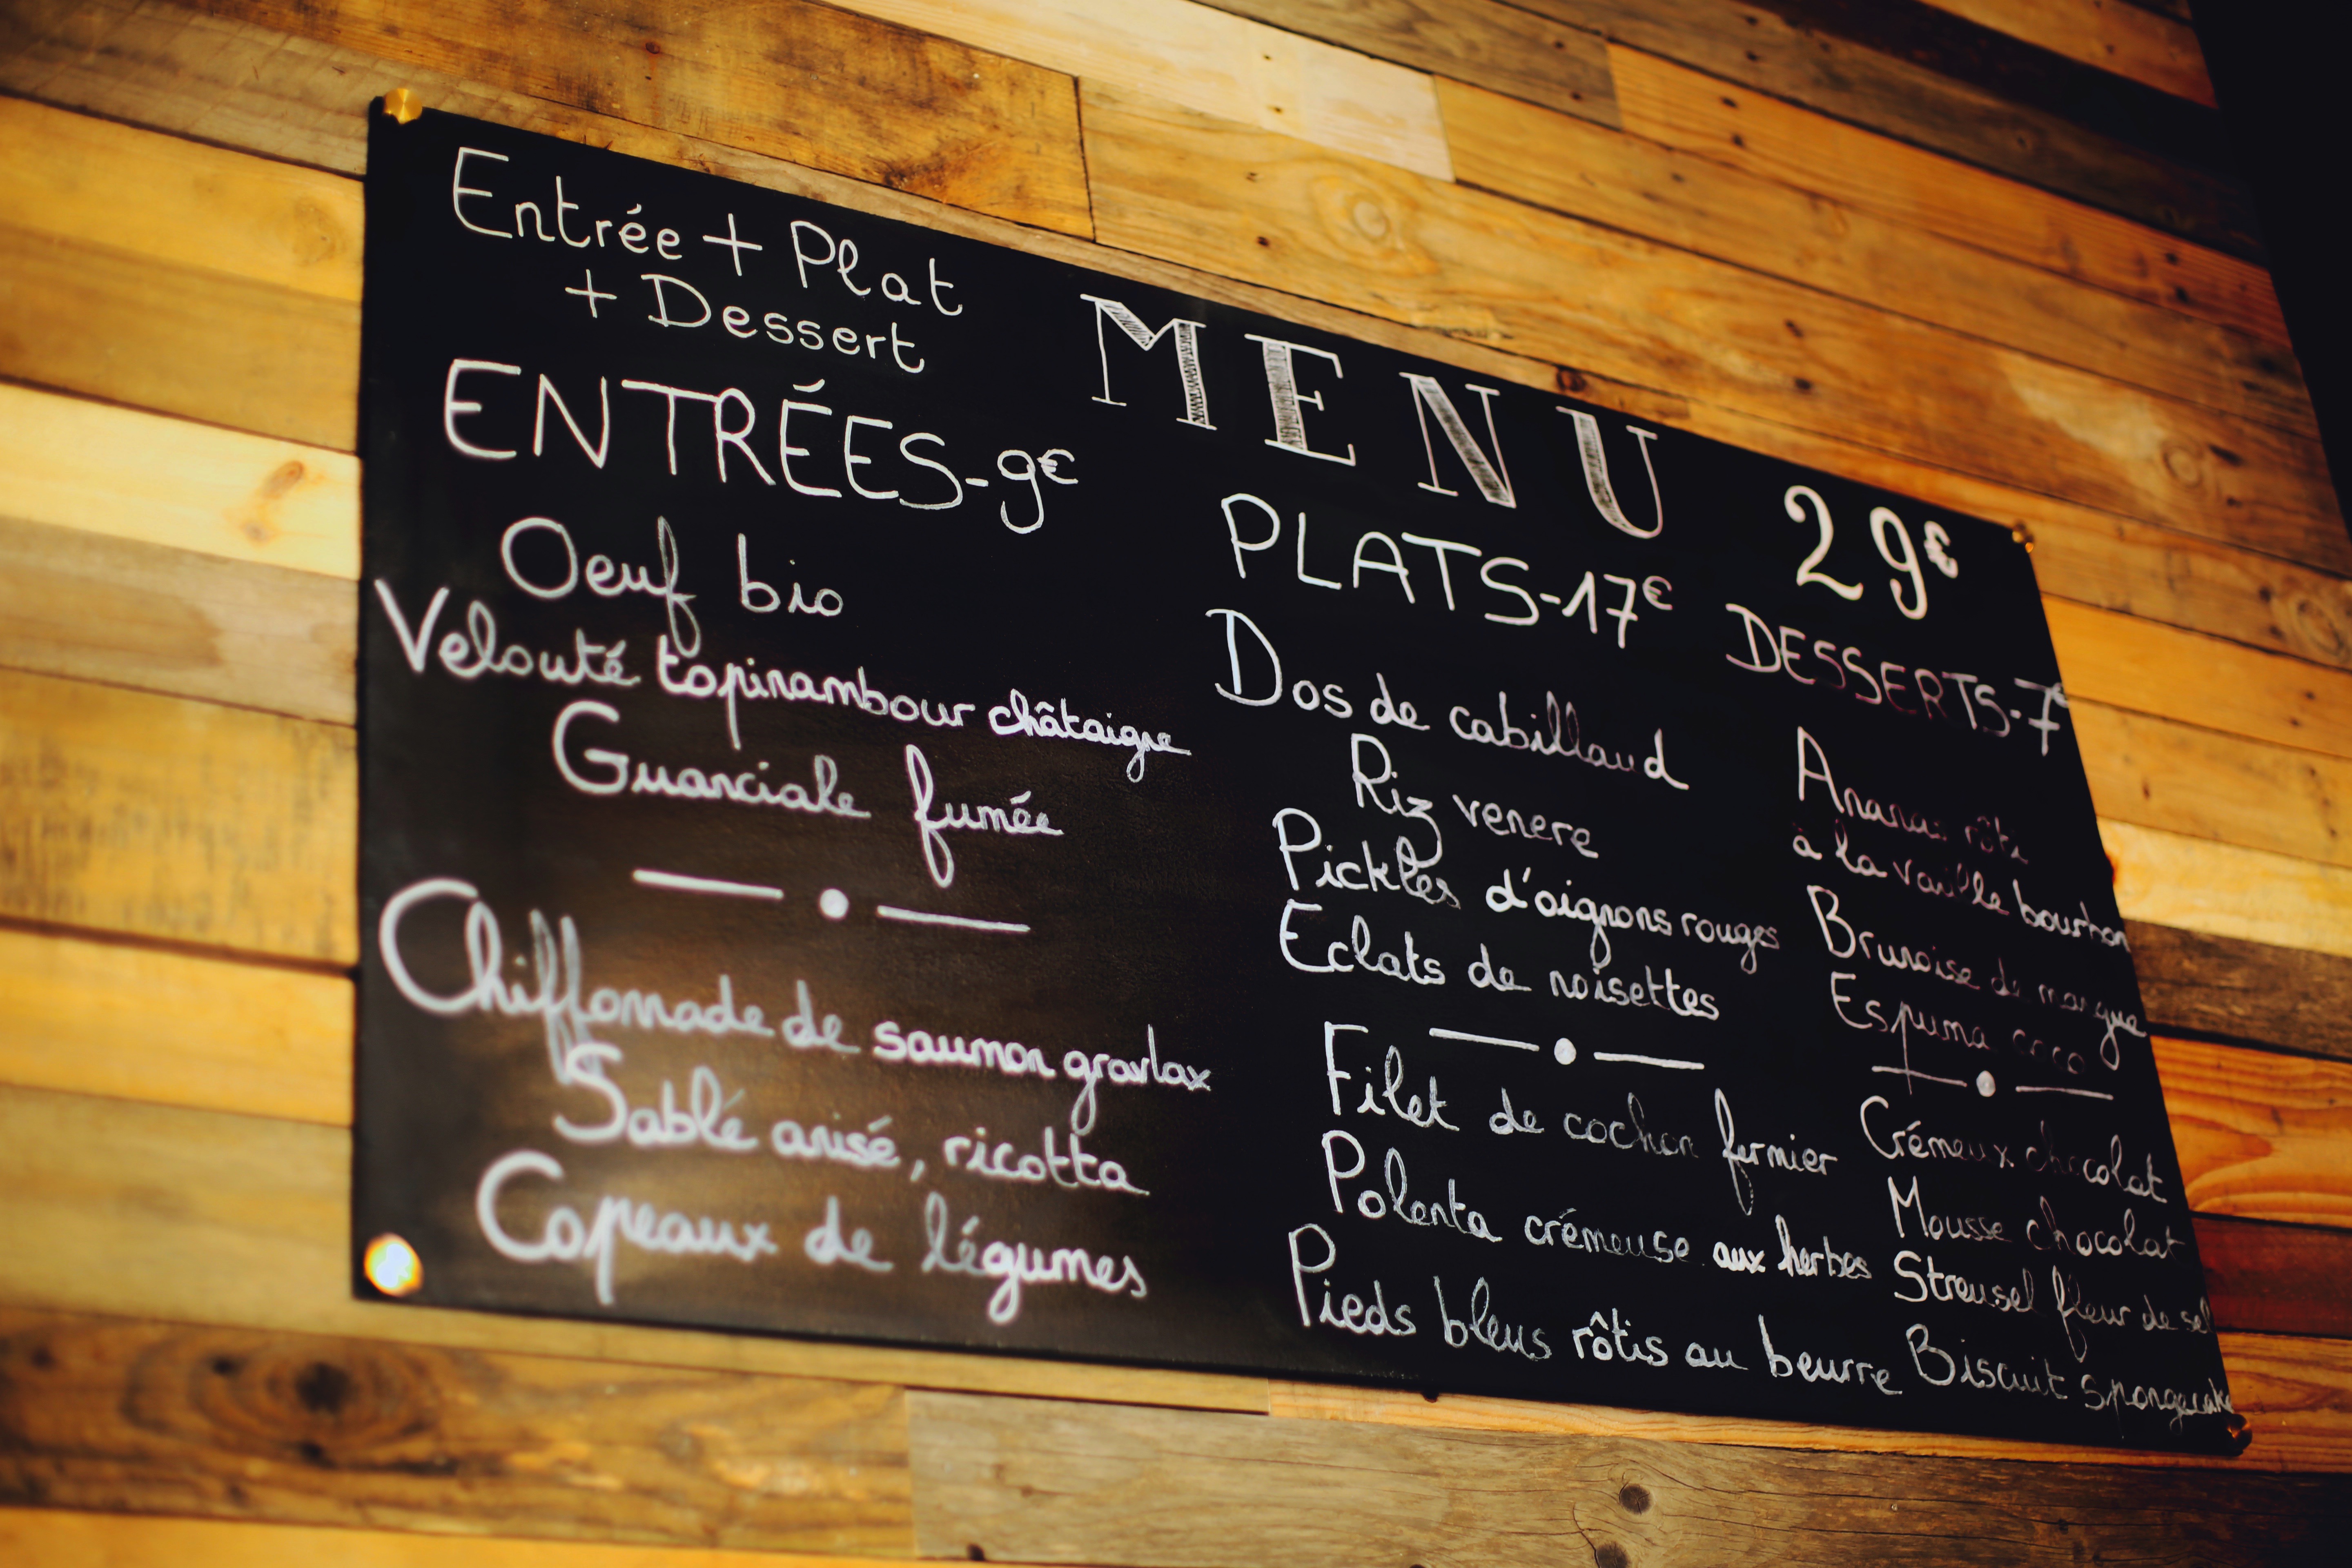 Entrée + Plat
+ Dessert
MENU 29€
ENTRÉES-9€
Oeuf bio
Velouté topinambour châtaigne
Guanciale fumée
Chiffonnade de saumon gravlax
Sablé anisé, ricotta
Copeaux de légumes
PLATS-17€
Dos de cabillaud
Riz venere
Pickles d'oignons rouges
Eclats de noisettes
Filet de cochon fermier
Polenta crémeuse aux herbes
Pieds bleus rôtis au beurre
DESSERTS-7€
Ananas rôti
à la vanille bourbon
Brunoise de mangue
Espuma coco
Crémeux chocolat
Mousse chocolat
Streusel fleur de sel
Biscuit spongecake